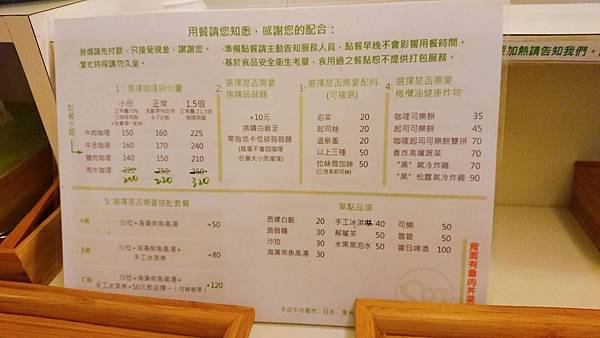 用餐請您知悉，感謝您的配合：
·勞煩請先付款，只接受現金，謝謝您。
·繁忙時段請勿久坐。
·準備點餐請主動告知服務人員，點餐早晚不會影響用餐時間。
·基於食品安全衛生考量，食用過之餐點恕不提供打包服務。
要加熱請告知我們。
點餐步驟
1：選擇咖哩與份量
小份 正常 1.5倍
牛肉咖哩 150 160 225
牛舌咖哩 160 170 240
豬肉咖哩 140 150 210
和牛咖哩 220 250 350
200 250 320
2：選擇是否需要
換購蒟蒻麵
+10元
換購白飯至
零脂低卡低碳蒟蒻麵
(麵量不會因咖哩
份量大小而增減)
3：選擇是否需要配料
(可複選)
泡菜 20
起司絲 20
溫泉蛋 20
以上三種 50
拉絲微加絲 50
(三倍多起司絲)
4：選擇是否需要
橄欖油健康炸物
咖哩可樂餅 35
起司可樂餅 45
咖哩起司可樂餅雙拼 70
香炸高纖蔬菜 70
"黑"氣冷炸雞 70
"黑"松露氣冷炸雞 90
5：選擇是否需要搭配套餐
A餐 沙拉+海藻柴魚高湯 +50
B餐 沙拉+海藻柴魚高湯+
手工冰淇淋 +80
C餐 沙拉+海藻柴魚高湯+
手工冰淇淋+50元飲品擇一 +120
單點品項
西螺白飯 20
蒟蒻麵 30
沙拉 30
海藻柴魚高湯 30
手工冰淇淋 40
解膩茶 50
水果氣泡水 50
可樂 50
雪碧 50
當日啤酒 100
背面有魯肉丼菜
本店牛肉產地：日本、澳